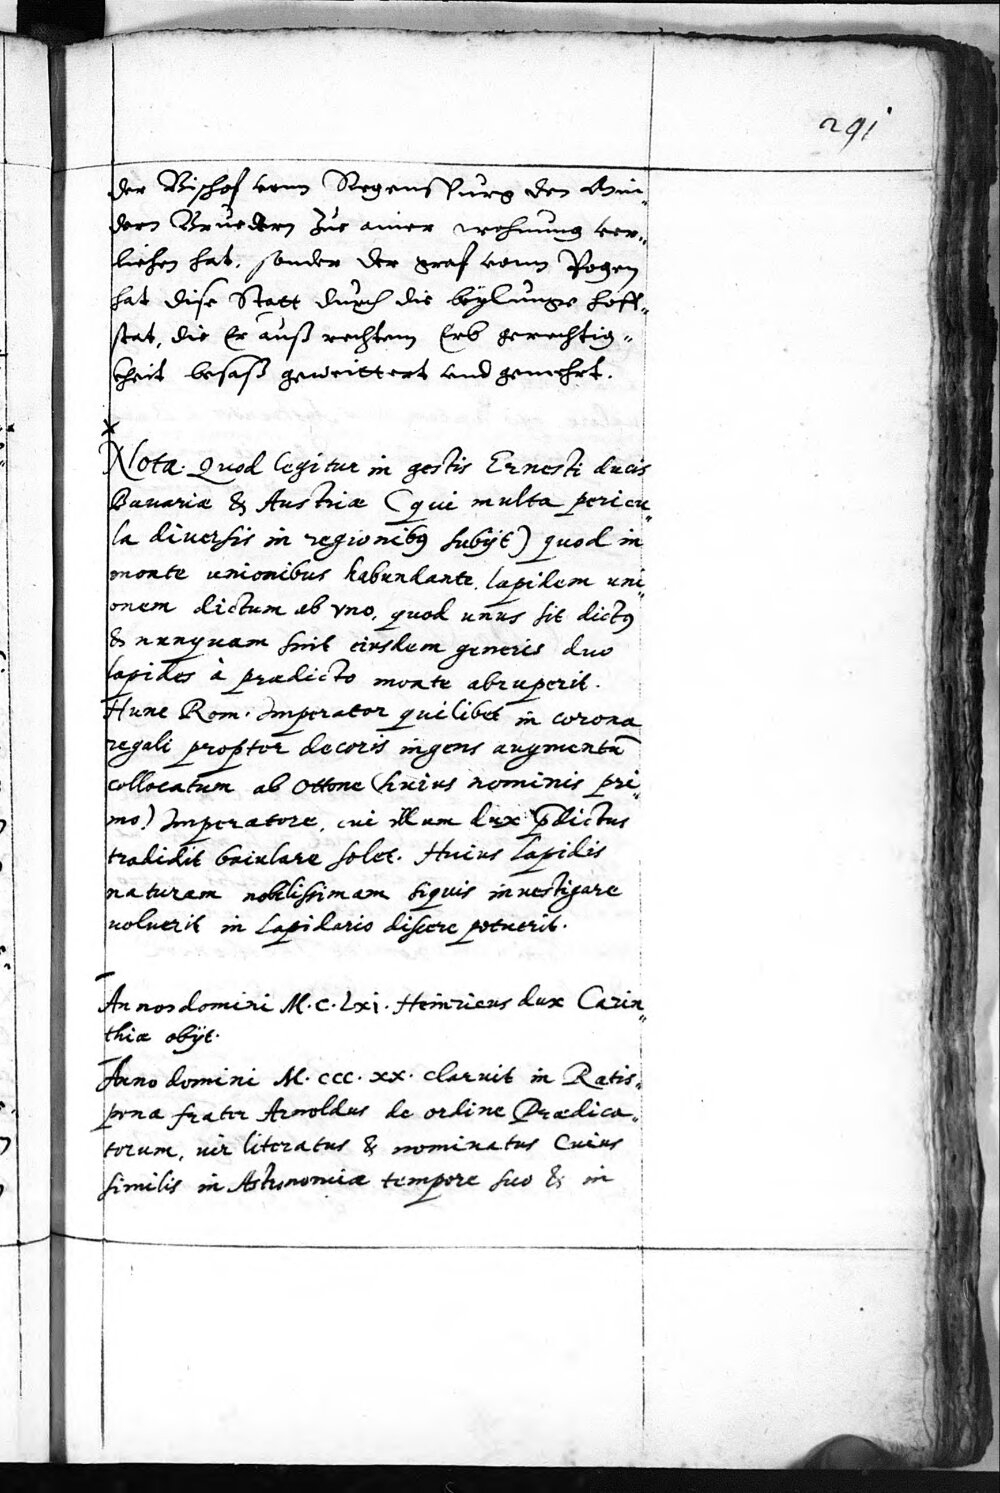 291
der Bischof vonn Regenspurg den Min„
dern Bruedern zue ainer wohnung ver„
liehen hat, sonder der graf vonn Pogen
hat dise Statt durch die beylunge hoff„
stat, die Er auß rechtem Erb gerechtig„
kheit besaß geweittert und gemehrt.
Nota. Quod legitur in gestis Ernesti ducis
Bauariæ & Austriæ (qui multa pericu„
la diuersis in regionibꝯ subijt) quod in
monte unionibus habundante, lapidem uni„
onem dictum ab vno, quod unus sit dictꝯ
& nunquam sint eiusdem generis duo
lapides à prædicto monte abruperit.
Hunc Rom. Imperator quilibet in corona
regali propter decoris ingens augmentū
collocatum ab Ottone (huius nominis pri„
mo) Imperatore, cui illum dux p̄dictus
tradidit baiulare solet. Huius lapidis
naturam nobilissimam siquis inuestigare
uoluerit in Lapidario discere potuerit.
Annos domini M.C.Lxi. Heinricus dux Carin„
thiæ obijt.
Anno domini M.ccc.xx. claruit in Ratis„
pona frater Arnoldus de ordine Prædica„
torum, uir literatus & nominatus Cuius
similis in Astronomiæ tempore suo & in